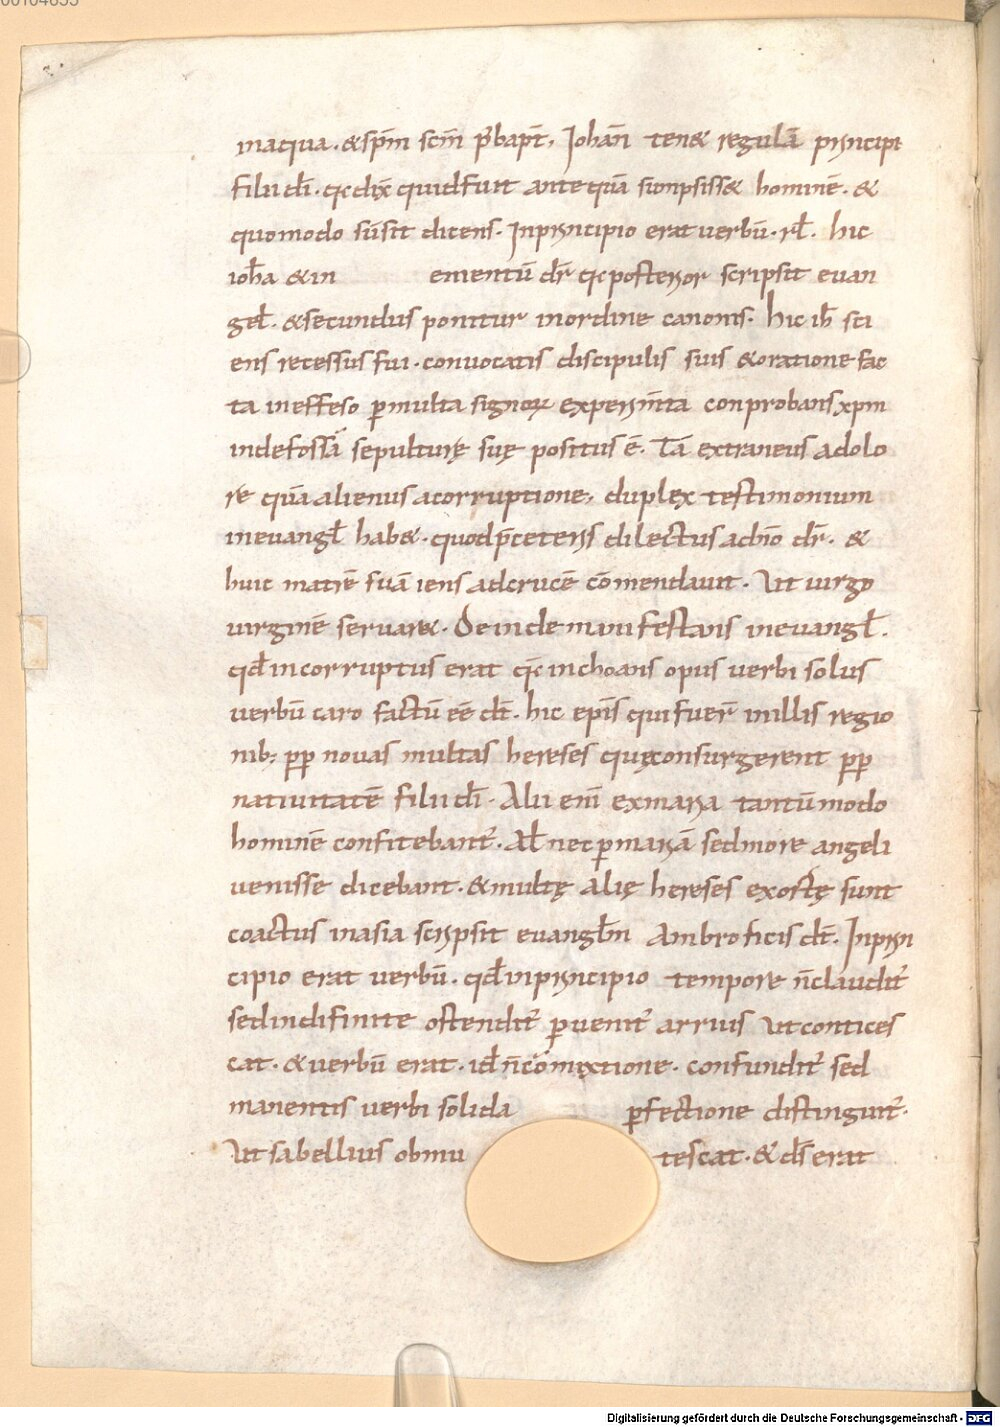 00104633
inaqua. & spm̄ scm̄ p̄ bapt̄. Johan̄ ten& regulā princip
filii dī. qc dix̄ quid fuit antequā sion psiss& hominē. &
quomodo sūsit dicens. Inprincipio erat verbū. rł. hic
ioħa & in ementū dr̄ qc posterior scripsit euan
geł. & secundus ponitur inordine canonis. hic iħ sci
ens recessus sui. conuocatis discipulis suis & oratione fac
ta in effeso ꝑmulta signoꝝ experim̄ta conprobans xpm
indefossā sepulturę suę positus ē. Tā extraneus adolo
re quā alienus acorruptione, duplex testimonium
ineuangł hab&. quod p̄ceteris dilectus adn̄o dr̄. &
huic matrē suā iens adcrucē cōmendauit. Ut uirgo
uirginē seruar&. Deinde manifestans ineuangł.
qđ incorruptus erat qc inchoans opus uerbi solus
verbū caro factū eē dt̄. hic ep̄is qui fuer̄ inillis regio
nib; ꝓp nouas multas hereses quę consurgerent ꝓp
natiuitatē filii dī. Alii enī exmaria tantūmodo
hominē confitebant̄. Ał nec ꝑmariā sed more angeli
uenisse dicebant. & multę alię hereses exortę sunt
coactus inasia scripsit euangłm Ambro ficis dt̄. Inprin
cipio erat verbū. qđ inprincipio tempore n̄ claudit̄
sed indifinite ostendit̄ ꝑuenit̄ arrius ut contices
cat. & verbū erat. idł n̄ cōmixtione. confundit̄ sed
manentis verbi solida ꝑfectione distinguit̄.
Ut sabellius obmu tescat. & ds̄ erat
Digitalisierung gefördert durch die Deutsche Forschungsgemeinschaft - DFG